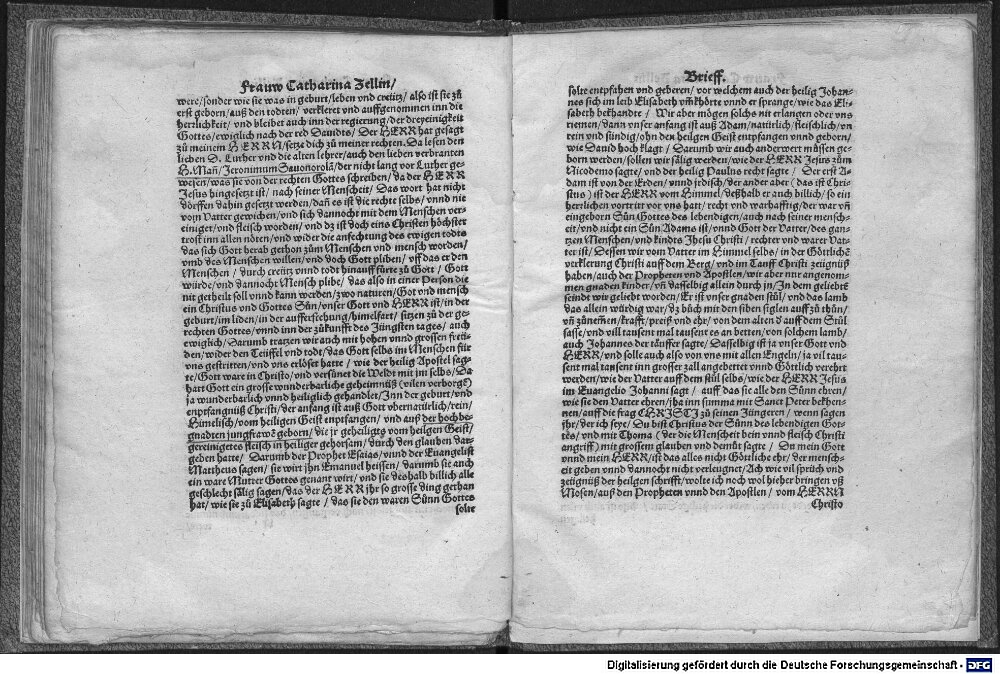 Frauw Catharina Zellin/
were/sonder wie sie was in geburt/leben vnd creütz/ also ist sie zů
erst geborn/auß den todten/ verkleret vnd auffgenommen inn die
herrlicheit/ vnd bleibet auch inn der regierung/der dreyeinigkeit
Gottes/ewiglich nach der red Dauidts/ Der HERR hat gesagt
zů meinem HERRN/setze dich zů meiner rechten. Da lesen den
lieben D. Luther vnd die alte lehrer/auch den lieben verbranten
H. Mañ/Jeronimum Sauonorolã/der nicht lang vor Luther ge-
wesen/was sie von der rechten Gottes schreiben/ da der HERR
Jesus hingesetzt ist/ nach seiner Menscheit/ Das wort hat nicht
dörffen dahin gesetzt werden/dañ es ist die recht selbs/ vnnd nie
vom Vatter gewichen/vnd sich dannocht mit dem Menschen ver-
einiget/vnd fleisch worden/ vnd dz ist doch eins Christen höchster
trost inn allen nöten/vnd wider die anfechtung des ewigen todts
das sich Gott herab gethon zům Menschen vnd mensch worden/
vmb des Menschen willen/vnd doch Gott pliben/ vff das er den
Menschen / durch creütz vnnd todt hinauff fürte zů Gott/ Gott
würde/vnd dannocht Mensch plibe/ das also in einer Person die
nit getheilt soll vnnd kann werden/zwo naturen/Got vnd mensch
ein Christus vnd Gottes Sůn/vnser Gott vnd HERR ist/in der
geburt/im liden/in der aufferstehung/himelfart/ sitzen zů der ge-
rechten Gottes/vnnd inn der zůkunfft des Jüngsten tages/ auch
ewiglich/ Darumb tratzen wir auch mit hohen vnnd grossen freü-
den/wider den Teüffel vnd todt/das Gott selbs im Menschen für
vns gestritten/vnd vns erlöset hatte / wie der heilig Apostel sag-
te/Gott ware in Christo/vnd versünet die Weldt mit im selbs/ Da
hatt Gott ein grosse wunderbarliche geheimnüß (vilen verborgē)
ja wunderbarlich vnnd heiliglich gehandlet/Inn der geburt/vnd
entpfangnüß Christi/der anfang ist auß Gott übernatürlich/rein/
Himelisch/vom heiligen Geist entpfangen/ vnd auß der hochbe-
gnadten jungfrawē geborn/ die jr geheiligts vom heilgen Geist/
gereinigetes fleisch in heiliger gehorsam/durch den glauben dar-
geben hatte/ Darumb der Prophet Esaias/vnnd der Euangelist
Mattheus sagen/sie wirt jhn Emanuel heissen/ darumb sie auch
ein ware Mutter Gottes genant wirt/vnd sie deshalb billich alle
geschlecht sälig sagen/das der HERR jhr so grosse ding gethan
hat/ wie sie zů Elisabeth sagte/ das sie den waren Sünn Gottes
solte
Brieff.
solte entpfahen vnd geberen/ vor welchem auch der heilig Johan-
nes sich im leib Elisabeth vm̃khörte vnnd er sprange/wie das Eli-
sabeth bekhandte / Wir aber mögen solchs nit erlangen oder vns
nennen/dann vnser anfang ist auß Adam/natürlich/fleischlich/vn
rein vnd sündig/ohn den heilgen Geist entpfangen vnnd geborn/
wie Dauid hoch klagt/ Darumb wir auch anderwert müssen ge-
born werden/sollen wir sälig werden/wie der HERR Jesus zům
Nicodemo sagte/vnd der heilig Paulus recht sagte/ Der erst A-
dam ist von der Erden/vnnd jrdisch/der ander aber (das ist Chri-
stus) ist der HERR vom Himmel/deßhalb er auch billich/ so ein
herrlichen vortritt vor vns hatt/ recht vnd warhafftig/der war vñ
eingeborn Sůn Gottes des lebendigen/auch nach seiner mensch-
eit/vnd nicht ein Sün Adams ist/vnnd Gott der Vatter/des gan-
tzen Menschen/vnd kindts Jhesu Christi/ rechter vnd warer Vat-
ter ist/Dessen wir vom Vatter im Himmel selbs/ in der Göttlichē
verklerung Christi auff dem Berg/vnd im Tauff Christi zeügnüß
haben/auch der Propheten vnd Apostlen/wir aber nur angenom-
men gnaden kinder/vñ dasselbig allein durch jn/In dem geliebtē
seindt wir geliebt worden/Er ist vnser gnaden stůl/ vnd das lamb
das allein würdig war/dz bůch mit den siben siglen auff zů thůn/
vñ zůnemēn/krafft/preiß vnd ehr/von dem alten ď auff dem Stůl
sasse/vnd vill tausent mal tausent es an betten/von solchem lamb/
auch Johannes der täuffer sagte/ Dasselbig ist ja vnser Gott vnd
HERR/vnd solle auch also von vns mit allen Engeln/ja vil tau-
sent mal tausent inn grosser zall angebettet vnnd Göttlich verehrt
werden/wie der Vatter auff dem stůl selbs/wie der HERR Jesus
im Euangelio Johanni sagt / auff das sie alle den Sünn ehren/
wie sie den Vatter ehren/Jha inn summa mit Sanct Peter bekhen-
nen/auff die frag CHRISTI zů seinen Jüngeren/ wenn sagen
jhr/der ich seye/ Du bist Christus der Sünn des lebendigen Got-
tes/ vnd mit Thoma (der die Menscheit bein vnnd fleisch Christi
angriff) mit grossem glauben vnd demůt sagte/ Du mein Gott
vnnd mein HERR/ist das alles nicht Göttliche ehr/der mensch-
eit geben vnnd dannocht nicht verleugnet/Ach wie vil sprüch vnd
zeügnüß der heilgen schrifft/wolte ich noch wol hieher bringen vß
Mosen/auß den Propheten vnnd den Apostlen / vom HERRN
Christo
Digitalisierung gefördert durch die Deutsche Forschungsgemeinschaft - DFG